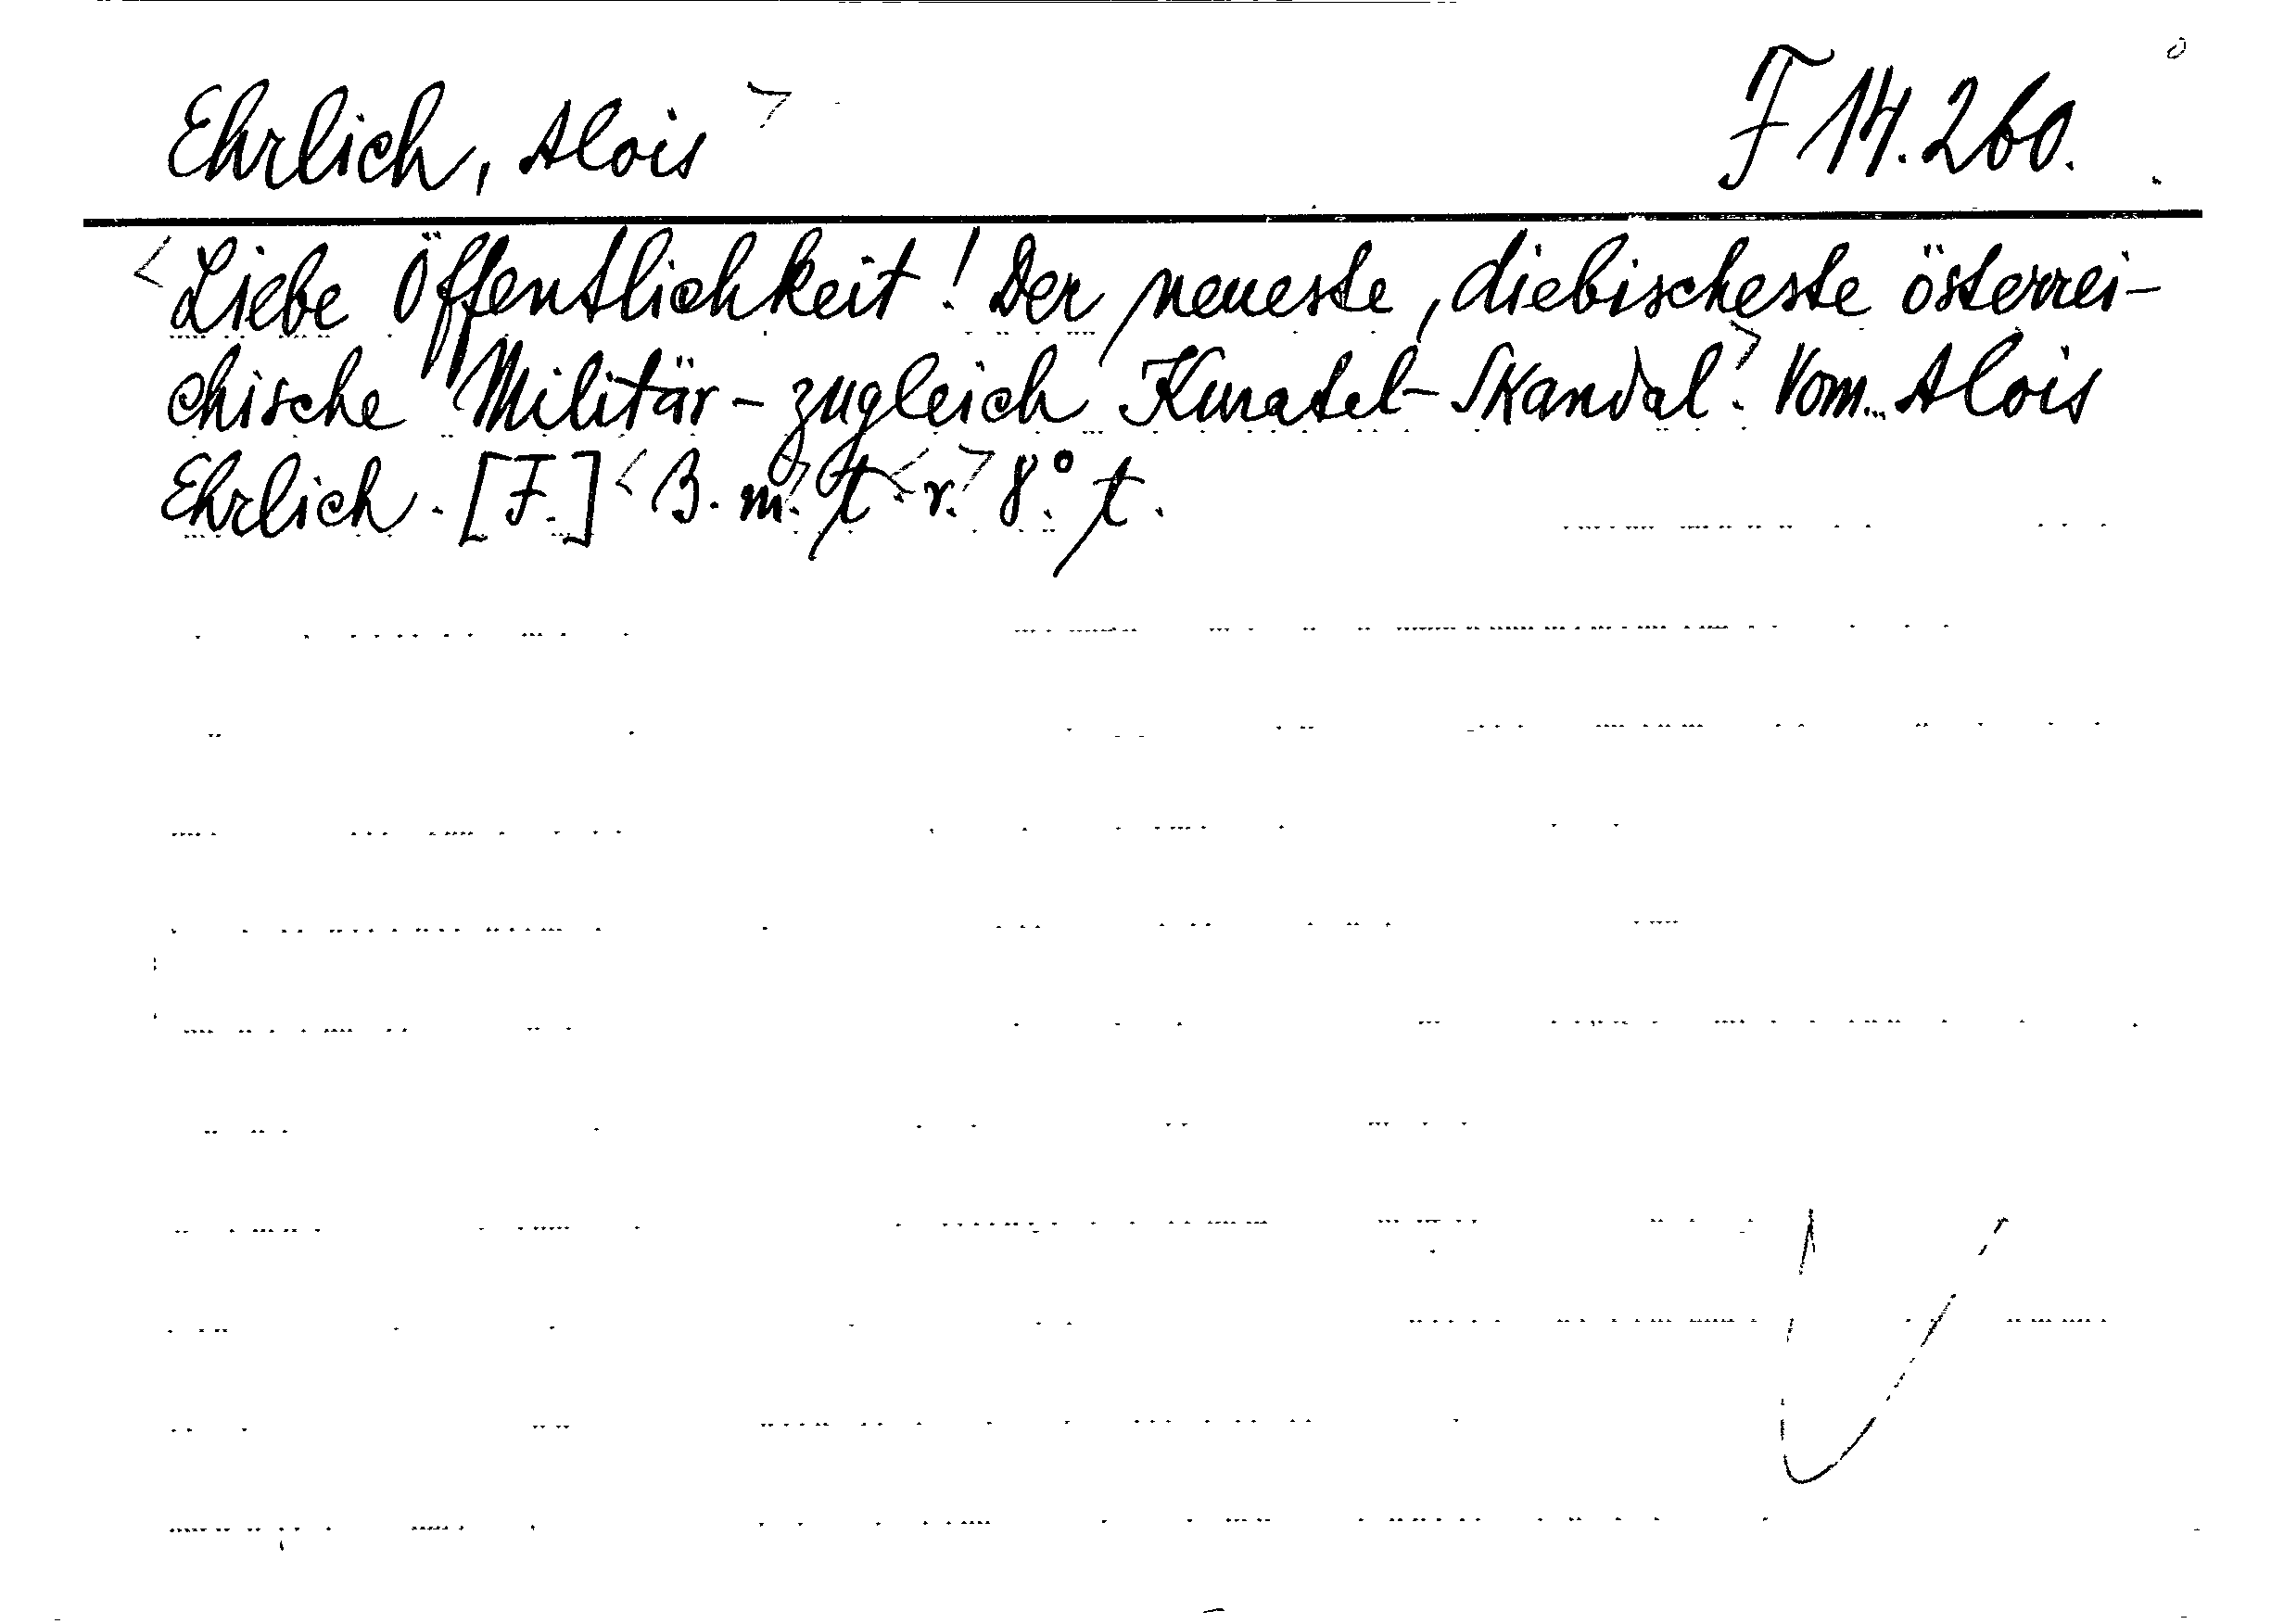 Ehrlich, Alois > F 14.260.
<Liebe Öffentlichkeit! Der neueste, diebischeste österrei-
chische Militär-zugleich Kuratel-Skandal.> Vom Alois
Ehrlich. [F.] <B. m.> t <r.> 8.° t.